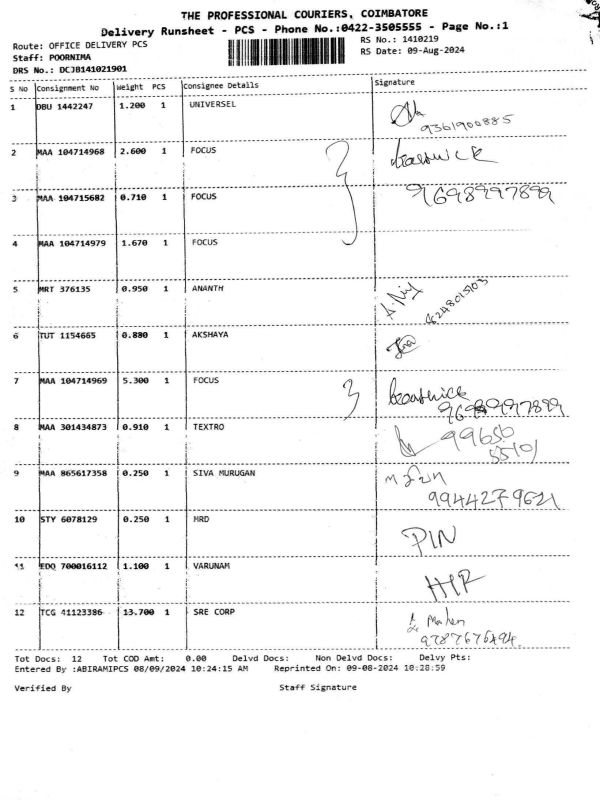 THE PROFESSIONAL COURIERS, COIMBATORE
Delivery Runsheet - PCS - Phone No.:0422-3505555 - Page No.:1
Route: OFFICE DELIVERY PCS
RS No.: 1410219
Staff: POORNIMA
RS Date: 09-Aug-2024
DRS No.: DCJB141021901
S No Consignment No Weight PCS Consignee Details Signature
1 DBU 1442247 1.200 1 UNIVERSEL
9361900885
2 MAA 104714968 2.600 1 FOCUS
3 MAA 104715682 0.710 1 FOCUS 9698997899
4 MAA 104714979 1.670 1 FOCUS
5 MRT 376135 0.950 1 ANANTH
6 TUT 1154665 0.880 1 AKSHAYA
7 MAA 104714969 5.300 1 FOCUS Beatrice
8 MAA 301434873 0.910 1 TEXTRO 99650
55101
9 MAA 865617358 0.250 1 SIVA MURUGAN
9944279621
10 STY 6078129 0.250 1 MRD PIN
11 EDQ 700016112 1.100 1 VARUNAM
12 TCG 41123386 13.700 1 SRE CORP
9787676494
Tot Docs: 12 Tot COD Amt: 0.00 Delvd Docs: Non Delvd Docs: Delvy Pts:
Entered By :ABIRAMIPCS 08/09/2024 10:24:15 AM Reprinted On: 09-08-2024 10:28:59
Verified By Staff Signature